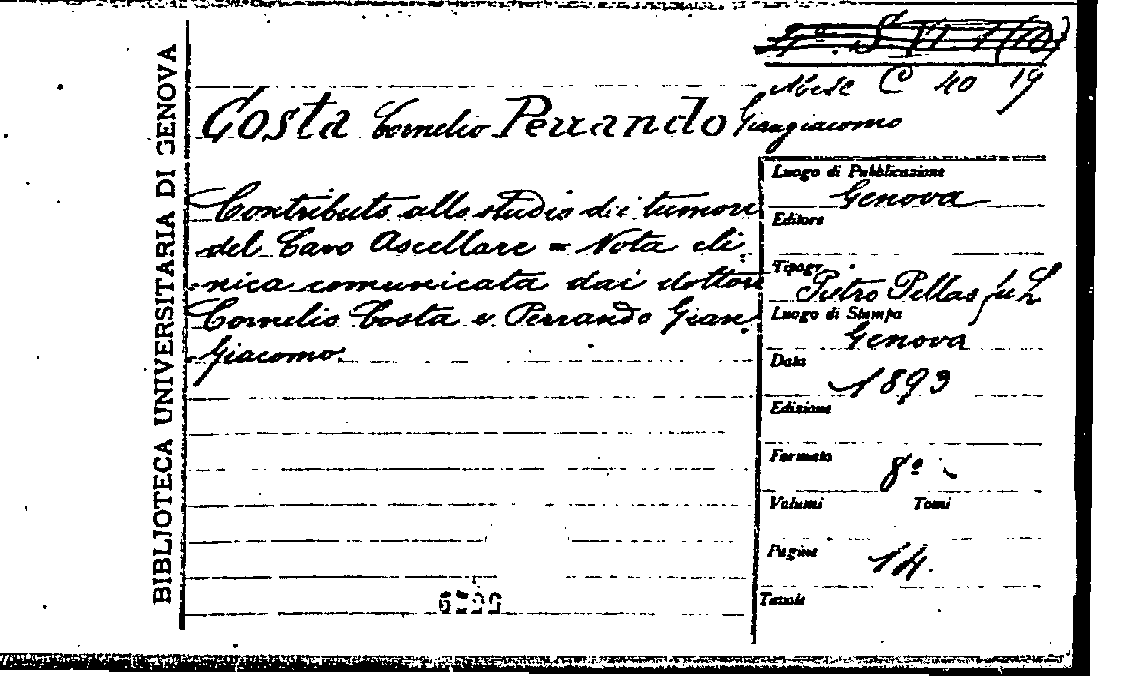 BIBLIOTECA UNIVERSITARIA DI GENOVA
Misc C 40 19
Costa Cornelio Perrando Giangiacomo
Contributo allo studio dei tumori
del Cavo Ascellare = Nota cli
nica comunicata dai dottori
Cornelio Costa e Perrando Gian
Giacomo.
Luogo di Pubblicazione
Genova
Editore
Tipogr.
Pietro Pellas fu L
Luogo di Stampa
Genova
Data
1893
Edizione
Formato
8º
Volumi Tomi
Pagine
14.
Tavole